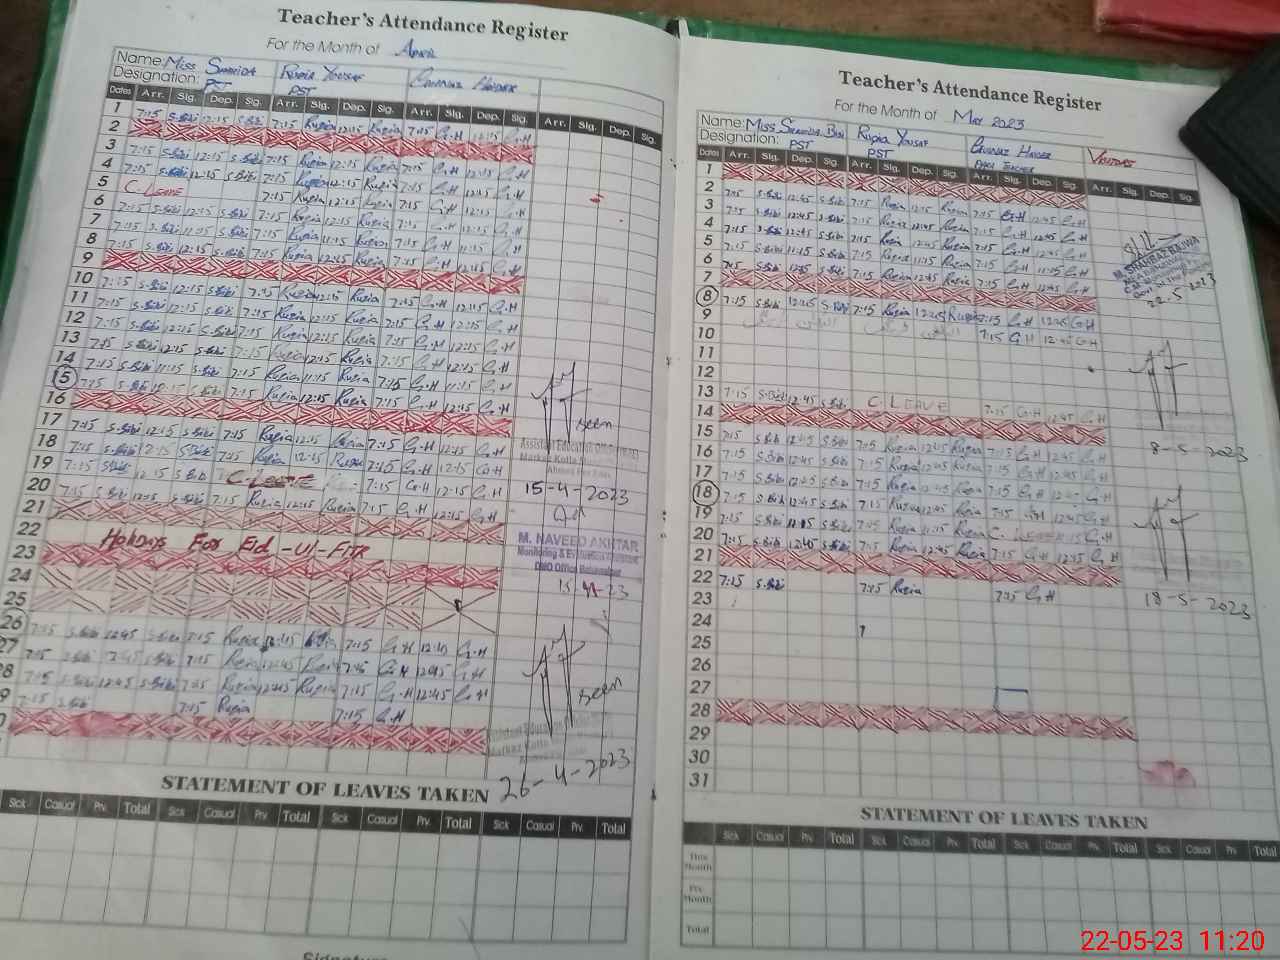 Teacher's Attendance Register
For the Month of April
Name: Miss Shamida Rupia Yousaf
Designation: PST PST
Dates Arr. Sig. Dep. Sig. Arr. Sig. Dep. Sig. Arr. Sig. Dep. Sig. Arr. Sig. Dep. Sig.
1 7:15 S.Bibi 12:15 S.Bibi 7:15 Rupia 12:15 Rupia 7:15 G.H 12:15 G.H
2
3 7:15 S.Bibi 12:15 S.Bibi 7:15 Rupia 12:15 Rupia 7:15 G.H 12:15 G.H
4 7:15 S.Bibi 12:15 S.Bibi 7:15 Rupia 12:15 Rupia 7:15 G.H 12:45 G.H
5 C. Leave 7:15 Rupia 12:15 Rupia 7:15 G.H 12:15 G.H
6 7:15 S.Bibi 12:15 S.Bibi 7:15 Rupia 12:15 Rupia 7:15 G.H 12:15 G.H
7 7:15 S.Bibi 11:15 S.Bibi 7:15 Rupia 11:15 Rupia 7:15 G.H 11:15 G.H
8 7:15 S.Bibi 12:15 S.Bibi 7:15 Rupia 12:15 Rupia 7:15 G.H 12:45 G.H
9
10 7:15 S.Bibi 12:15 S.Bibi 7:15 Rupia 12:15 Rupia 7:45 G.H 12:15 G.H
11 7:15 S.Bibi 12:15 S.Bibi 7:15 Rupia 12:15 Rupia 7:15 G.H 12:15 G.H
12 7:15 S.Bibi 12:15 S.Bibi 7:15 Rupia 12:15 Rupia 7:15 G.H 12:15 G.H
13 7:15 S.Bibi 12:15 S.Bibi 7:15 Rupia 12:15 Rupia 7:15 G.H 12:15 G.H
14 7:15 S.Bibi 11:15 S.Bibi 7:15 Rupia 11:15 Rupia 7:15 G.H 11:15 G.H
15 7:15 S.Bibi 12:15 S.Bibi 7:15 Rupia 12:15 Rupia 7:15 G.H 12:15 G.H
16
17 7:15 S.Bibi 12:15 S.Bibi 7:15 Rupia 12:15 Rupia 7:15 G.H 12:15 G.H
18 7:15 S.Bibi 12:15 S.Bibi 7:15 Rupia 12:15 Rupia 7:45 G.H 12:15 G.H
19 7:15 S.Bibi 12:15 S.Bibi C. Leave 7:15 G.H 12:15 G.H
20 7:15 S.Bibi 12:15 S.Bibi 7:15 Rupia 12:15 Rupia 7:15 G.H 12:15 G.H
21
22
Holidays For Eid-Ul-Fitr
23
24
25
26 7:15 S.Bibi 12:45 S.Bibi 7:15 Rupia 12:45 Rupia 7:15 G.H 12:45 G.H
27 7:15 S.Bibi 12:45 S.Bibi 7:15 Rupia 12:45 Rupia 7:45 G.H 12:45 G.H
28 7:15 S.Bibi 12:45 S.Bibi 7:45 Rupia 12:45 Rupia 7:15 G.H 12:45 G.H
29 7:15 S.Bibi 7:15 Rupia 7:15 G.H
Seen
15-4-2023
M. NAVEED AKHTAR
Monitoring & Evaluation
DMO Office
Seen
26-4-2023
STATEMENT OF LEAVES TAKEN
Sick Casual Prv. Total Sick Casual Prv. Total Sick Casual Prv. Total Sick Casual Prv. Total
Teacher's Attendance Register
For the Month of May 2023
Name: Miss Shamida Bibi Rupia Yousaf Visitors
Designation: PST PST Teacher
Dates Arr. Sig. Dep. Sig. Arr. Sig. Dep. Sig. Arr. Sig. Dep. Sig. Arr. Sig. Dep. Sig.
1
2 7:15 S.Bibi 12:45 S.Bibi 7:15 Rupia 12:15 Rupia 7:15 G.H 12:45 G.H
3 7:15 S.Bibi 12:45 S.Bibi 7:15 Rupia 12:45 Rupia 7:15 G.H 12:45 G.H
4 7:15 S.Bibi 12:45 S.Bibi 7:15 Rupia 12:45 Rupia 7:15 G.H 12:45 G.H
5 7:15 S.Bibi 11:15 S.Bibi 7:15 Rupia 11:15 Rupia 7:15 G.H 11:15 G.H
6 7:15 S.Bibi 12:45 S.Bibi 7:15 Rupia 12:45 Rupia 7:15 G.H 12:45 G.H
7
8 7:15 S.Bibi 12:45 S.Bibi 7:15 Rupia 12:45 Rupia 7:15 G.H 12:45 G.H
9 7:15 G.H 12:45 G.H
10
11
12
13 7:15 S.Bibi 12:45 S.Bibi C. LEAVE 7:15 G.H 12:45 G.H
14
15 7:15 S.Bibi 12:45 S.Bibi 7:15 Rupia 12:45 Rupia 7:15 G.H 12:45 G.H
16 7:15 S.Bibi 12:45 S.Bibi 7:15 Rupia 12:45 Rupia 7:15 G.H 12:45 G.H
17 7:15 S.Bibi 12:45 S.Bibi 7:15 Rupia 12:45 Rupia 7:15 G.H 12:45 G.H
18 7:15 S.Bibi 12:45 S.Bibi 7:15 Rupia 12:45 Rupia 7:15 G.H 12:45 G.H
19 7:15 S.Bibi 11:15 S.Bibi 7:15 Rupia 11:15 Rupia C. Leave
20 7:15 S.Bibi 12:45 S.Bibi 7:15 Rupia 12:45 Rupia 7:15 G.H 12:45 G.H
21
22 7:15 S.Bibi 7:15 Rupia 7:15 G.H
23
24
25
26
27
28
29
30
31
M. SHAHBAZ RAJWA
22.5.2023
8-5-2023
18-5-2023
STATEMENT OF LEAVES TAKEN
Sick Casual Prv. Total Sick Casual Prv. Total Sick Casual Prv. Total Sick Casual Prv. Total
This Month
Pre Month
Total
22-05-23 11:20